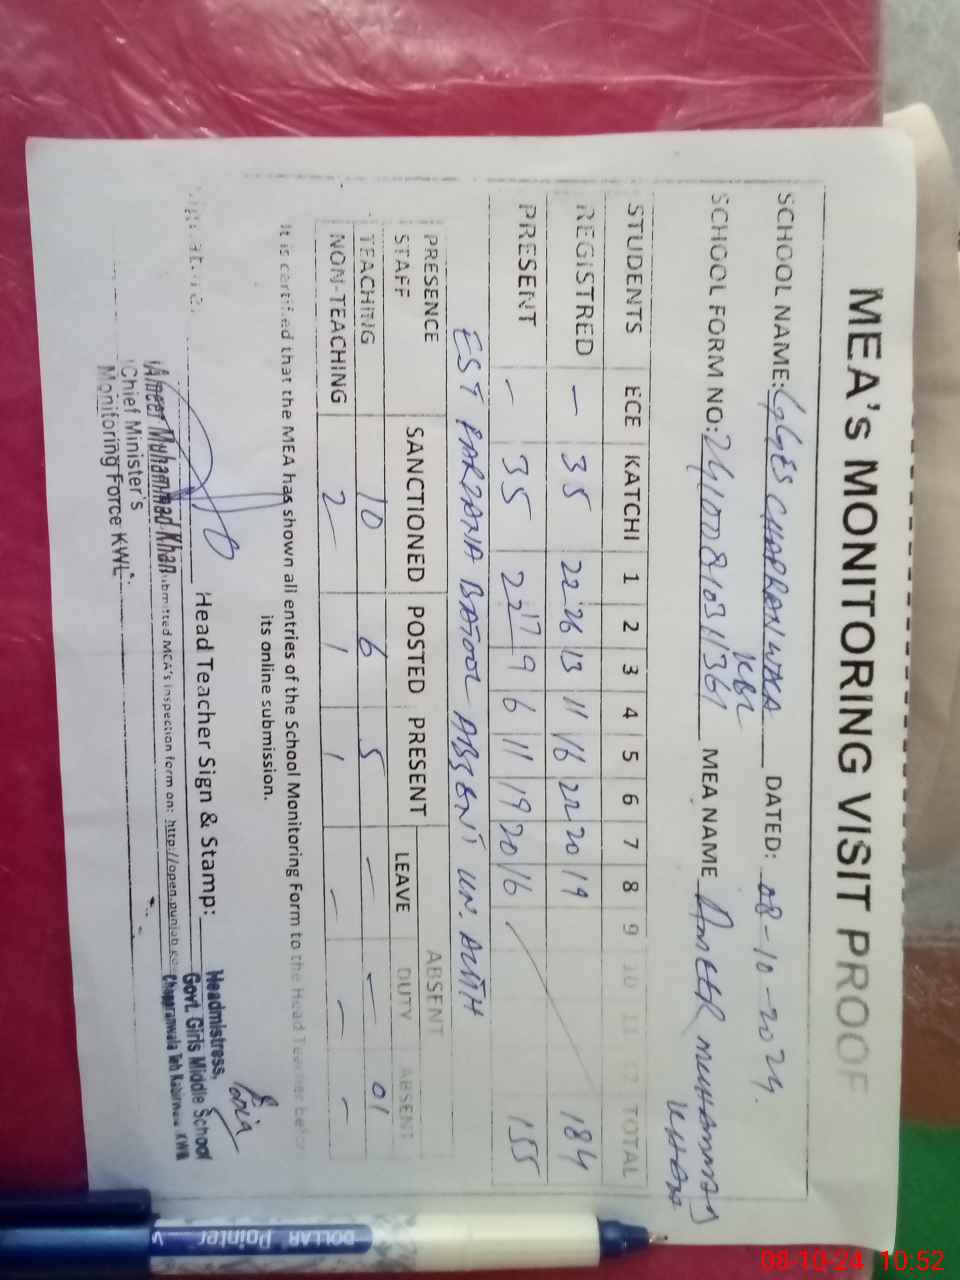 MEA's MONITORING VISIT PROOF
SCHOOL NAME: GGES CHAPRANWALA KBL DATED: 08-10-2024.
SCHOOL FORM NO: MEA NAME AMEER MUHAMMAD KHAN
STUDENTS ECE KATCHI 1 2 3 4 5 6 7 8 9 10 11 12 TOTAL
REGISTRED - 35 22 26 13 11 16 22 20 19 184
PRESENT - 35 22 17 9 6 11 19 20 16 155
EST FARZANA BATOOL ABSENT UN. AUTH
PRESENCE ABSENT
STAFF SANCTIONED POSTED PRESENT LEAVE DUTY ABSENT
TEACHING 10 6 5 - - 01
NON-TEACHING 2 1 1 - - -
It is certified that the MEA has shown all entries of the School Monitoring Form to the Head Teacher before
its online submission.
Signature: Head Teacher Sign & Stamp:
Headmistress,
Govt. Girls Middle School
Chapranwala Teh Kabirwala KWL
Ameer Muhammad Khan submitted MEA's inspection form on: http://open.punjab.go
Chief Minister's
Monitoring Force KWL.
DOLLAR Pointer
08-10-24 10:52